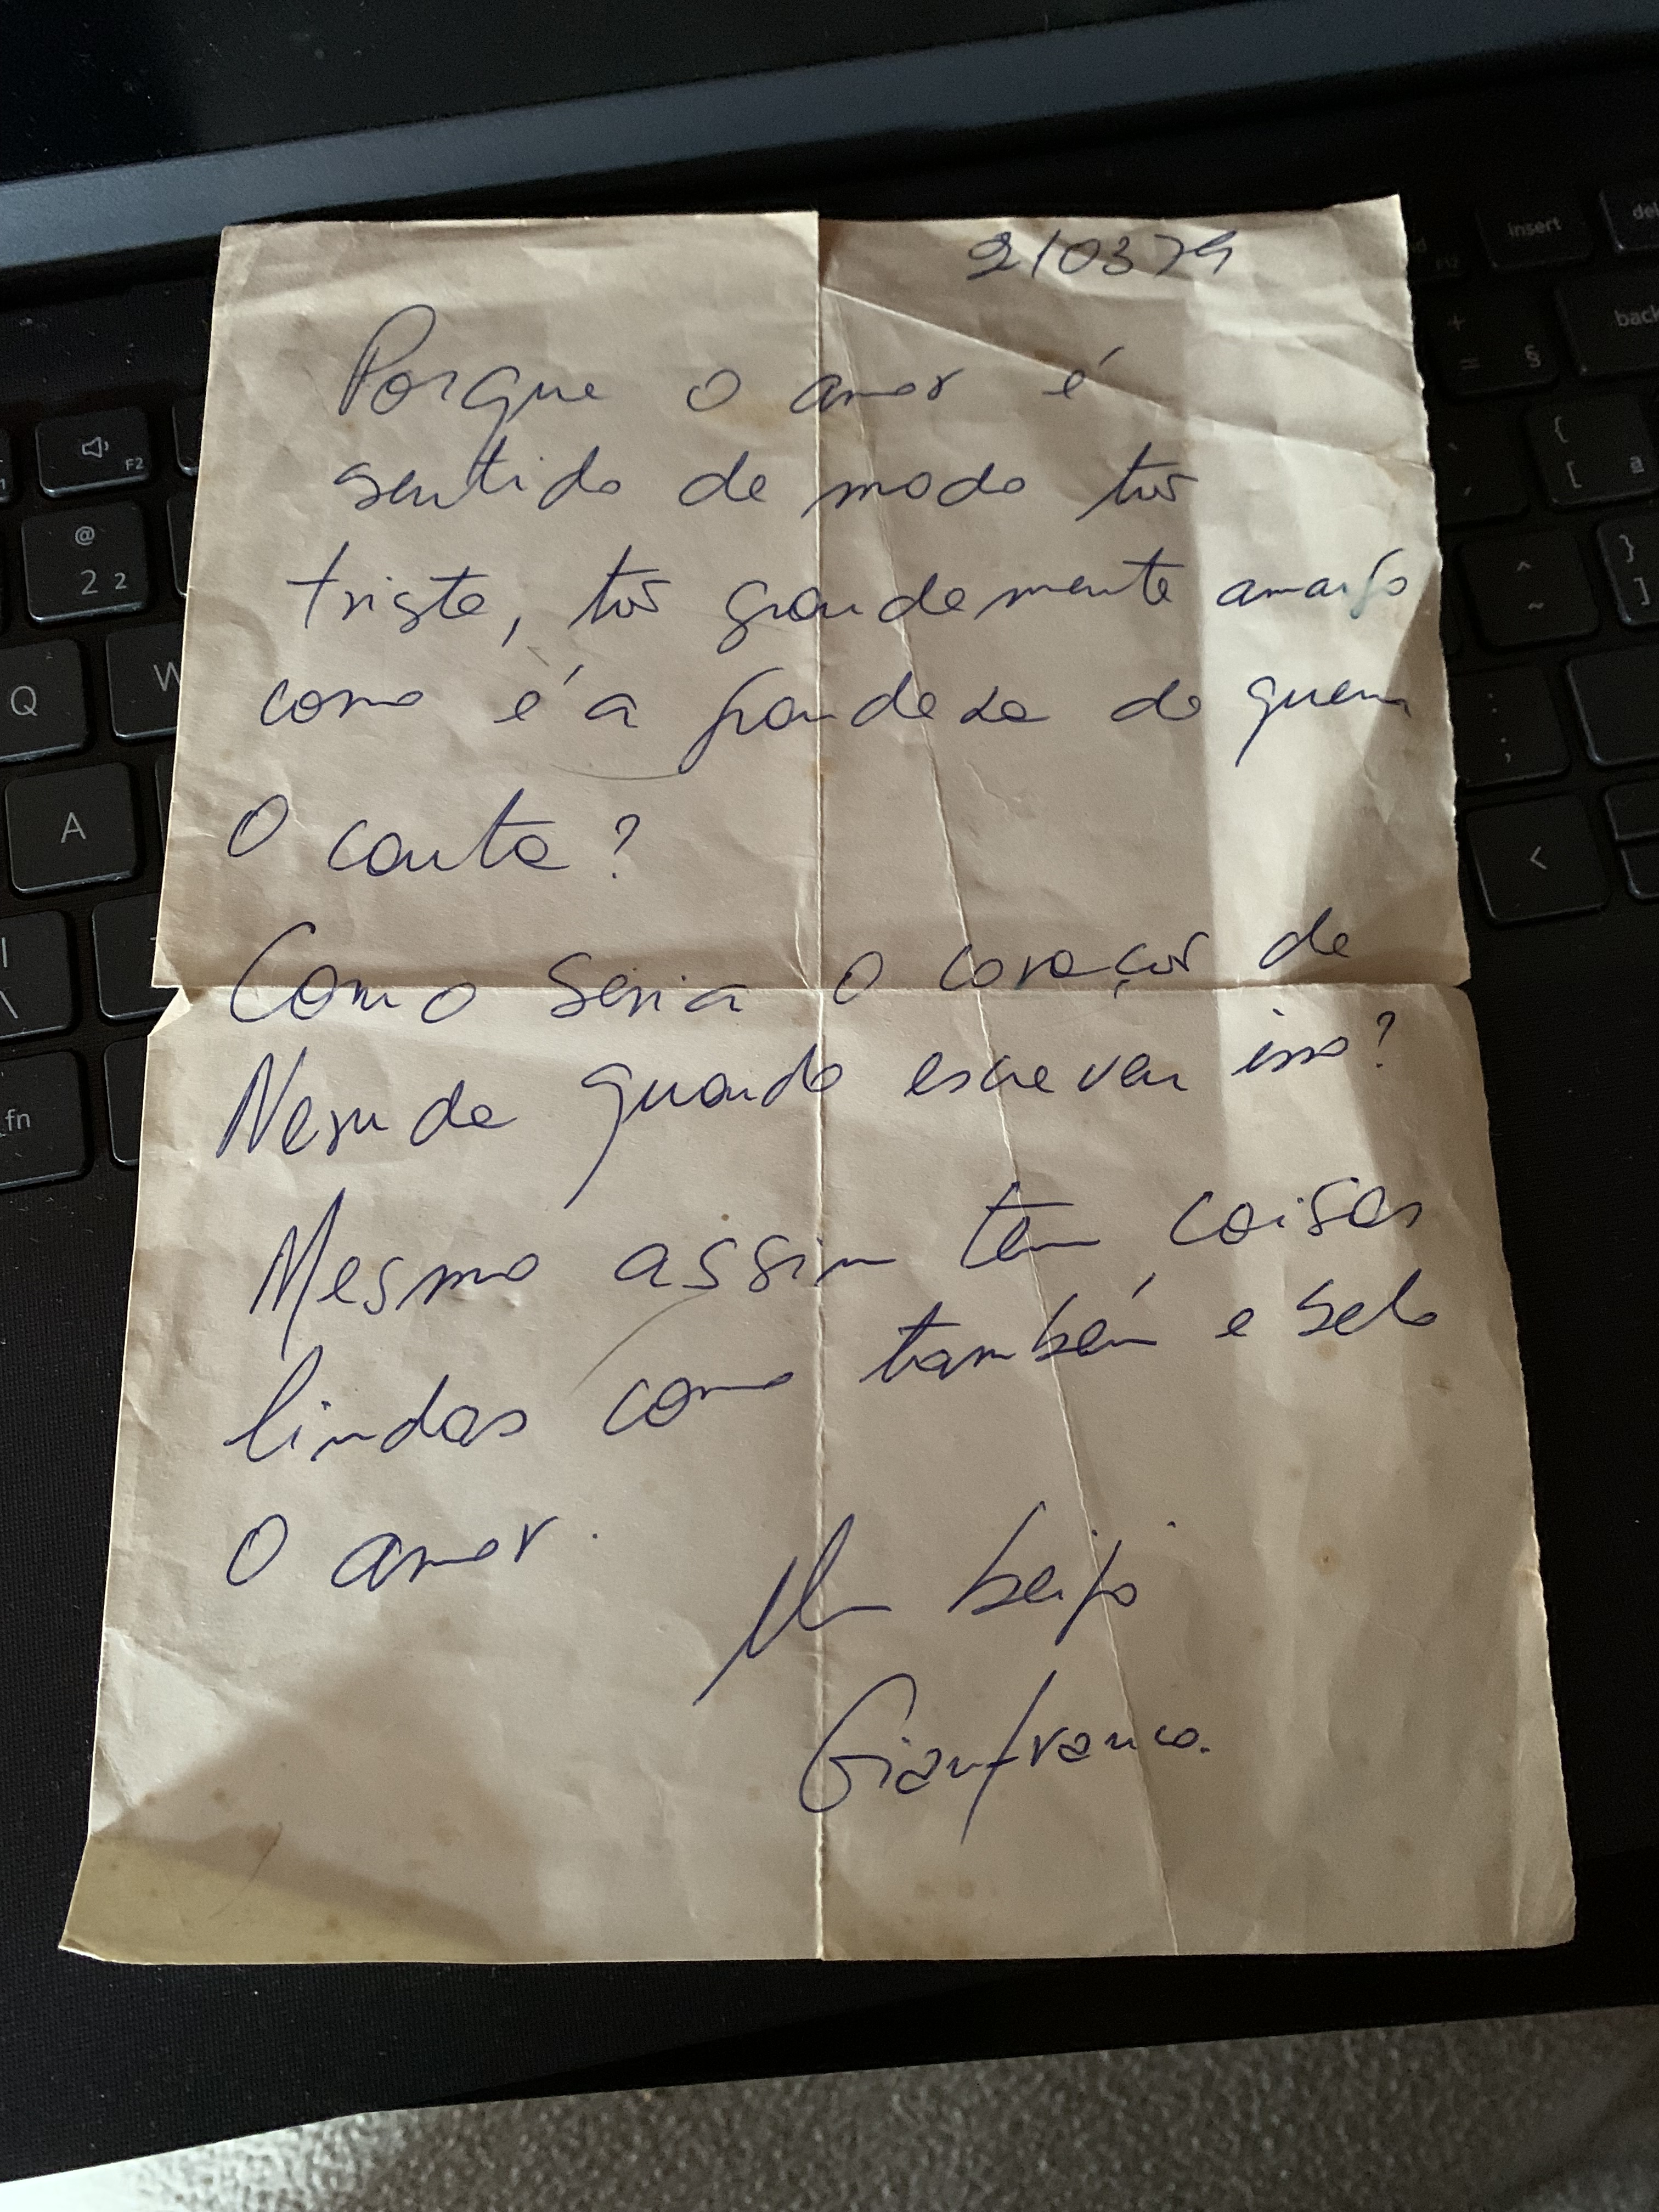 210379
Porque o amor é
sentido de modo tão
triste, tão grandemente amargo
como é a grandeza de quem
o canta?
Como seria o coração de
Neruda quando escreveu isso?
Mesmo assim tem coisas
lindas como também é belo
o amor.
Um beijo
Gianfranco.
insert
del
back
F2
@
2 2
Q
W
A
fn